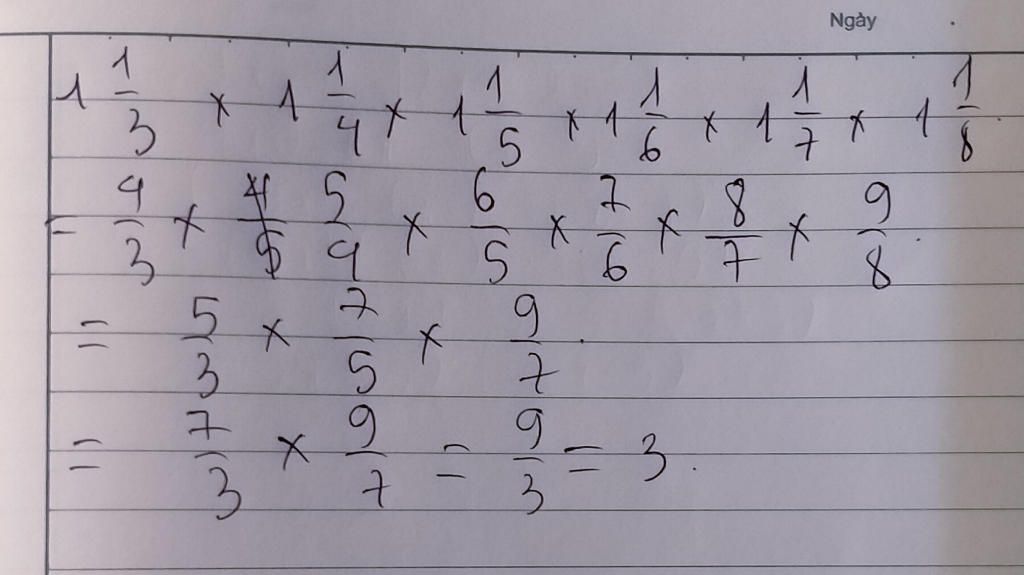 Ngày
1 1/3 × 1 1/4 × 1 1/5 × 1 1/6 × 1 1/7 × 1 1/8.
= 4/3 × 5/4 × 6/5 × 7/6 × 8/7 × 9/8.
= 5/3 × 7/5 × 9/7.
= 7/3 × 9/7 = 9/3 = 3.